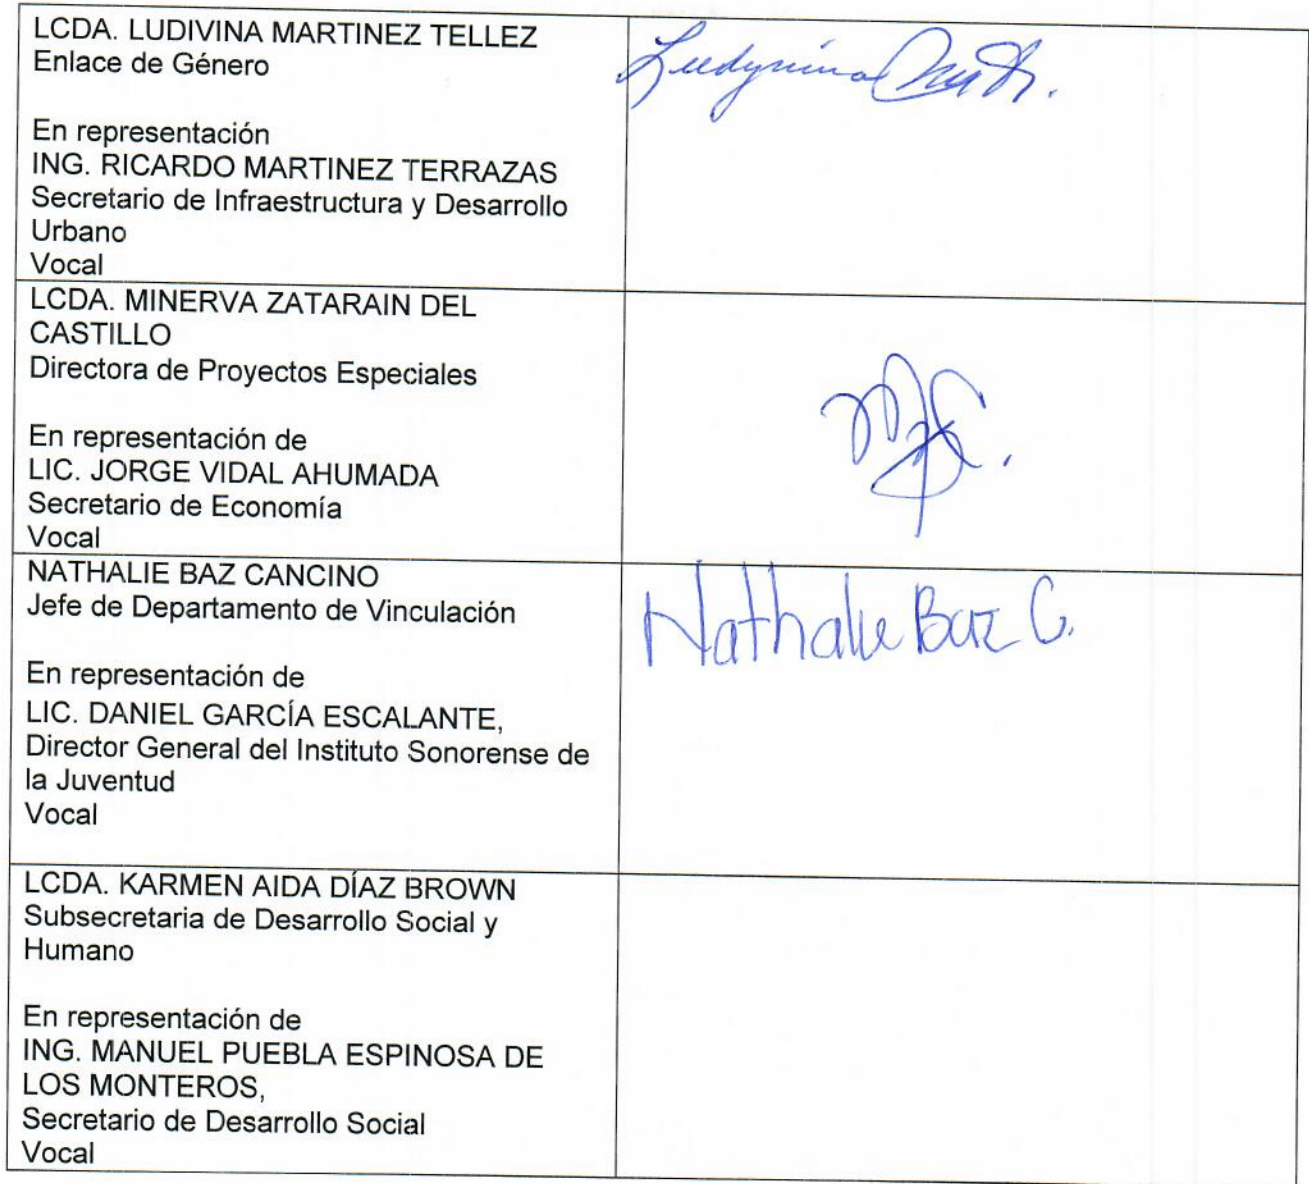 LCDA. LUDIVINA MARTINEZ TELLEZ
Enlace de Género
En representación
ING. RICARDO MARTINEZ TERRAZAS
Secretario de Infraestructura y Desarrollo
Urbano
Vocal
LCDA. MINERVA ZATARAIN DEL
CASTILLO
Directora de Proyectos Especiales
En representación de
LIC. JORGE VIDAL AHUMADA
Secretario de Economía
Vocal
NATHALIE BAZ CANCINO
Jefe de Departamento de Vinculación
En representación de
LIC. DANIEL GARCÍA ESCALANTE,
Director General del Instituto Sonorense de
la Juventud
Vocal
Nathalie Baz C.
LCDA. KARMEN AIDA DÍAZ BROWN
Subsecretaria de Desarrollo Social y
Humano
En representación de
ING. MANUEL PUEBLA ESPINOSA DE
LOS MONTEROS,
Secretario de Desarrollo Social
Vocal